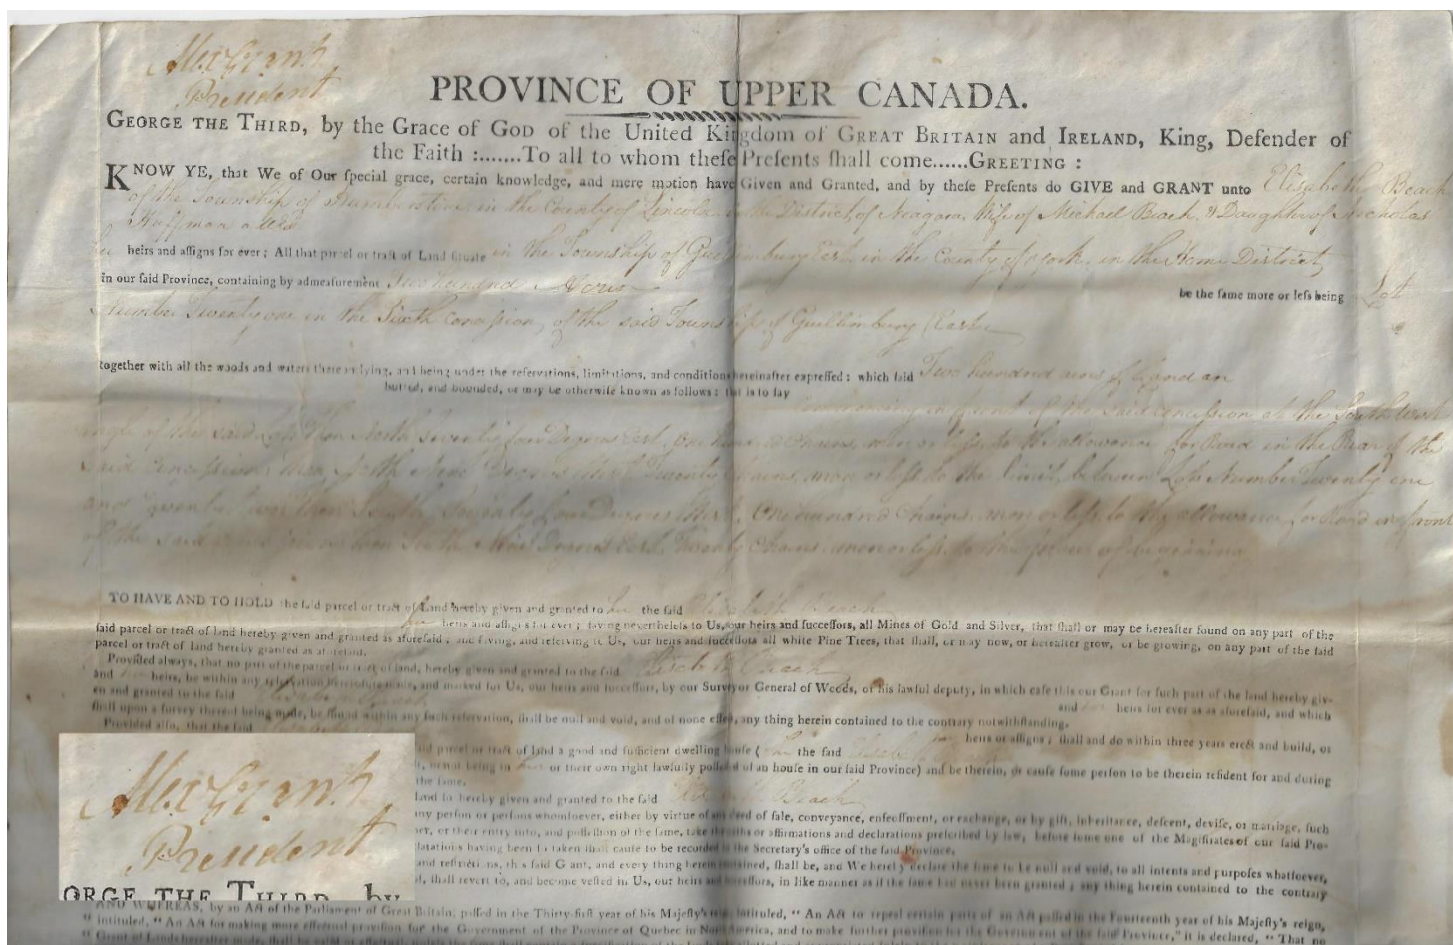 Alex Grant
President
PROVINCE OF UPPER CANADA.
GEORGE THE THIRD, by the Grace of GOD of the United Kingdom of GREAT BRITAIN and IRELAND, King, Defender of
the Faith :.......To all to whom theſe Preſents ſhall come......GREETING :
KNOW YE, that We of Our ſpecial grace, certain knowledge, and mere motion have Given and Granted, and by theſe Preſents do GIVE and GRANT unto Elisabeth Beach
of the Township of in the County of Lincoln in the District of Niagara Wife of Michael Beach & Daughter of Nicholas
Huffman
heirs and aſſigns for ever ; All that parcel or tract of Land ſituate in the Township of East in the County of York in the Home District
in our ſaid Province, containing by admeaſurement Two hundred Acres
be the ſame more or leſs being Lot
Number Twenty one in the Sixth concession, of the said Township of East
together with all the woods and waters thereon lying, and being under the reſervations, limitations, and conditions hereinafter expreſſed : which ſaid Two hundred acres of Land are
butted, and bounded, or may be otherwiſe known as follows ; that is to ſay
Commencing in front of the said concession at the South West
angle of the said Lot Then North Seventy four Degrees East, One hundred Chains, more or less, to the allowance for Road in the Rear of the
said concession, then North Nine Degrees West Twenty Chains, more or less to the limit between Lots Number Twenty one
and Twenty two then South Seventy four Degrees West, One hundred Chains, more or less to the allowance for Road in front
of the said concession then South Nine Degrees East Twenty Chains more or less to the place of beginning
TO HAVE AND TO HOLD the ſaid parcel or tract of Land hereby given and granted to her the ſaid Elisabeth Beach
her heirs and aſſigns for ever ; ſaving nevertheleſs to Us, our heirs and ſucceſſors, all Mines of Gold and Silver, that ſhall or may be hereafter found on any part of the
ſaid parcel or tract of land hereby given and granted as aforeſaid ; and ſaving, and reſerving to Us, our heirs and ſucceſſors all white Pine Trees, that ſhall, or may now, or hereafter grow, or be growing, on any part of the ſaid
parcel or tract of land hereby granted as aforeſaid.
Provided always, that no part of the parcel or tract of land, hereby given and granted to the ſaid Elisabeth Beach
and her heirs, be within any reſervation heretofore made, and marked for Us, our heirs and ſucceſſors, by our Surveyor General of Woods, or his lawful deputy, in which caſe this our Grant for ſuch part of the land hereby giv-
en and granted to the ſaid Elisabeth Beach and her heirs for ever as as aforeſaid, and which
ſhall upon a ſurvey thereof being made, be found within any ſuch reſervation, ſhall be null and void, and of none effect, any thing herein contained to the contrary notwithſtanding.
Provided alſo, that the ſaid heirs or aſſigns ; ſhall and do within three years erect and build, or
ſaid parcel or tract of land a good and ſufficient dwelling houſe ( ſhe the ſaid Elisabeth Beach
or not being in her or their own right lawfully poſſeſſed of an houſe in our ſaid Province) and be therein, or cauſe ſome perſon to be therein reſident for and during
the ſame.
land ſo hereby given and granted to the ſaid Elisabeth Beach
any perſon or perſons whomſoever, either by virtue of any deed of ſale, conveyance, enfeoffment, or exchange, or by gift, inheritance, deſcent, deviſe, or marriage, ſuch
or their entry into, and poſſeſſion of the ſame, take the oaths or affirmations and declarations preſcribed by law, before ſome one of the Magiſtrates of our ſaid Pro-
larations having been ſo taken ſhall cauſe to be recorded in the Secretary's office of the ſaid Province.
and reſtrictions, this ſaid Grant, and every thing herein contained, ſhall be, and We hereby declare the ſame to be null and void, to all intents and purpoſes whatſoever,
ſhall revert to, and become veſted in Us, our heirs and ſucceſſors, in like manner as if the ſame had never been granted ; any thing herein contained to the contrary
Alex Grant
President
ORGE THE THIRD, by
AND WHEREAS, by an Act of the Parliament of Great Britain, paſſed in the Thirty-firſt year of his Majeſty's reign, intituled, “ An Act to repeal certain parts of an Act paſſed in the Fourteenth year of his Majeſty's reign,
“ intituled, “ An Act for making more effectual proviſion for the Government of the Province of Quebec in North America, and to make further proviſion for the Government of the ſaid Province,” it is declared, “ That no